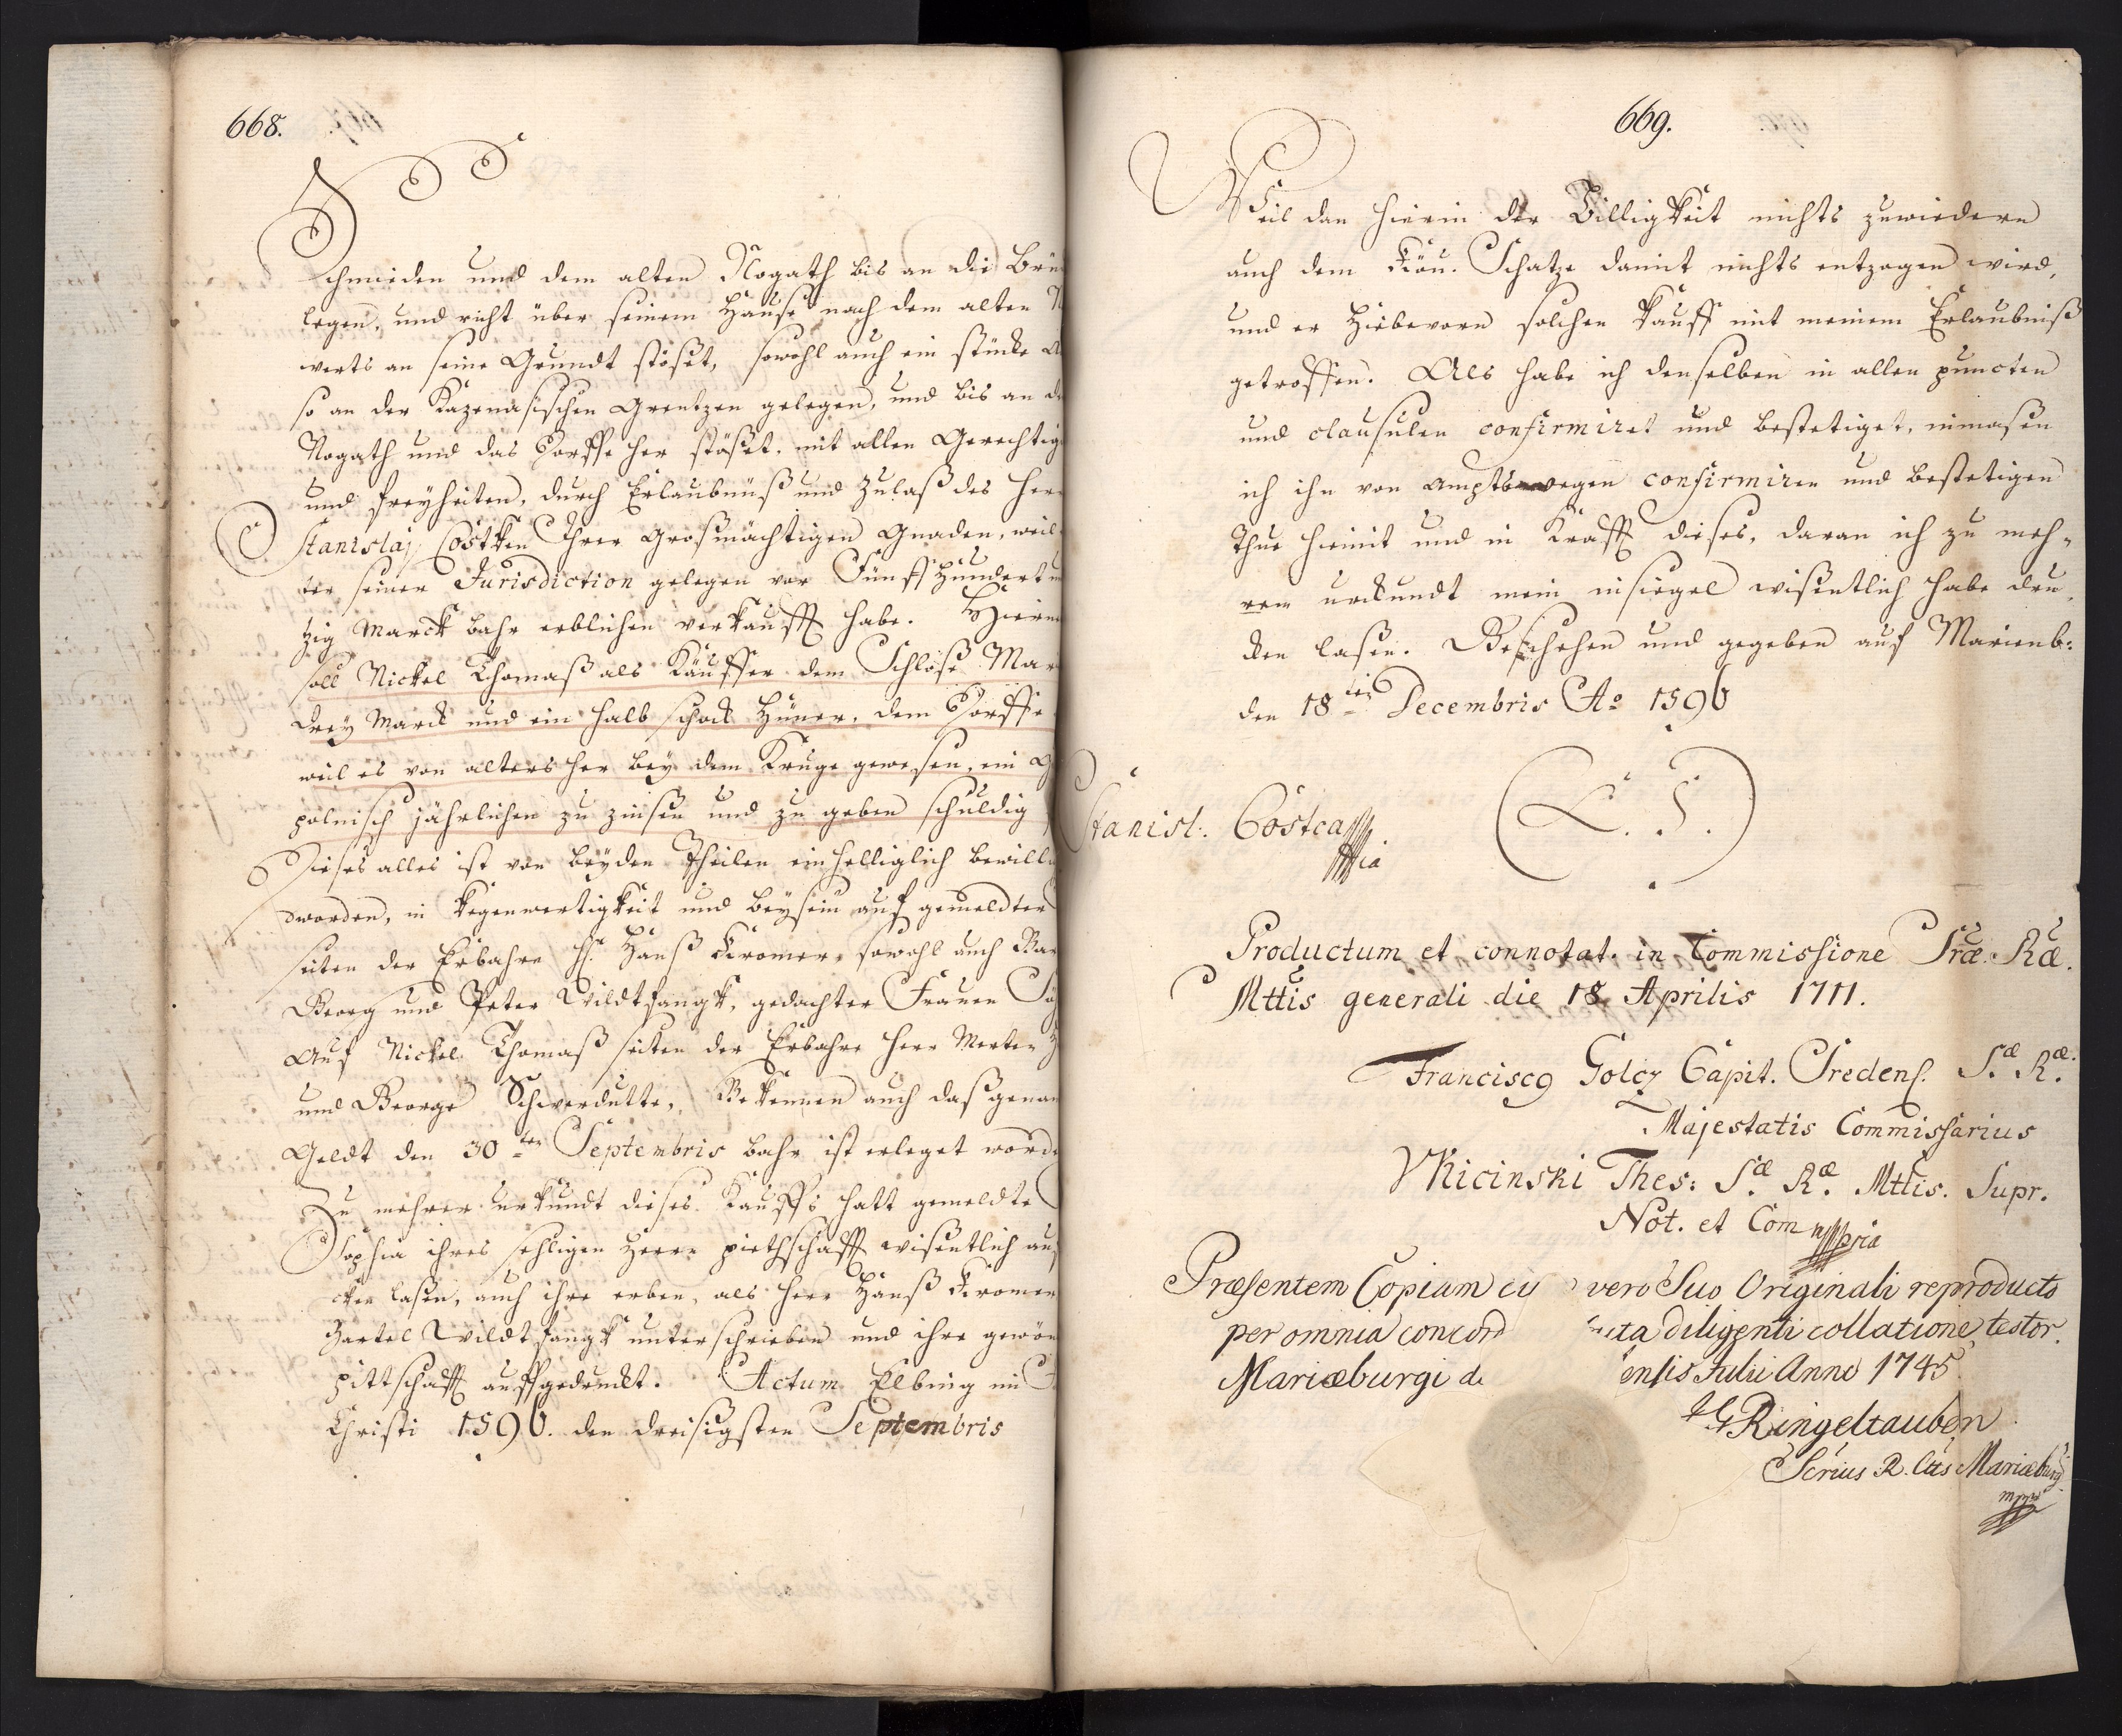 668.
Schmieden und dem alten Nogath bis an die Brü
legen, und recht über seinem Hause nach dem alten N
werts an seine Grundt stößet, sowohl auch ein stücke A
so an der Kazenasischen Grentzen gelegen, und bis an de
Nogath und das Dorffe her stößet. mit allen Gerechtig
und freyheiten, durch Erlaubnüß und Zulaß des Herr
Stanislaj Costken Ihrer Großmächtigen Gnaden, weil
ter seiner Jurisdiction gelegen vor Fünff Hundert u
tzig Marck bahr erblichen verkaufft habe. Hierm
soll Nickel Thomaß als Käuffer dem Schloße Mar
drey Marck und ein halb schock Hüner, dem Dorffe
weil es von alters her bey dem Kruge gewesen, ein G
polnisch jährlichen zu zinsen und zu geben schuldig
Dieses alles ist von beyden Theilen einhelliglich bewill
dworden, in kegenwertigkeit und beysein auf gemeldter
seiten der Erbahre H. Hanß Kromer, sowohl auch Bar
Georg und Peter Wildtfangk, gedachter Frauen Sö
Auf Nickel Thomaß seiten der Erbahre Herr Merten
und George Schwerdutte, Bekennen auch daß genan
Geldt den 30ten Septembris bahr ist erleget worde
Zu mehrer urkundt dieses Kauffs hatt gemeldte
Sophia ihres sehligen Herrn piethschafft wißentlich auf
cken laßen, auch ihre erben, als Herr Hanß Kromer
Bartel Wildtfangk unterschrieben und ihre gewön
pittschafft auffgedruckt. Actum Elbing im
Christi 1596. den dreisigsten Septembris
669.
Weil dan hierin der Billigkeit nichts zuwiedern
auch dem Kön. Schatze damit nichts entzogen wird,
und er Hiebevorn solchen Kauff mit meinem Erlaubniß
getroffen. Als habe ich denselben in allen puncten
und clausulen confirmiret und bestetiget, inmaßen
ich ihn von Ampts wegen confirmiren und bestetigen
Thue hiemit und in Krafft dieses, daran ich zu meh-
rem urkundt mein insiegel wißentlich habe dru-
cken laßen. Geschehen und gegeben auf Marienb:
den 18ten Decembris Ao 1596
Stanisl: Costca mpia
L. S.
Productum et connotat. in Commissione Sræ Ræ.
Mttis generali die 18 Aprilis 1711.
Francisc9 Golcz Capit. Sredens. Sæ Ræ.
Majestatis Commissarius
VKicinski Thes: Sæ Ræ. Mttis. Supr.
Not. et Com mpria
Præsentem Copiam cu vero Suo Originali reproducto
per omnia concord ta diligenti collatione testor.
Mariæburgi d ensis Julii Anno 1745
Ringeltauben
Scrius R. Ctis Mariæburg
mpp